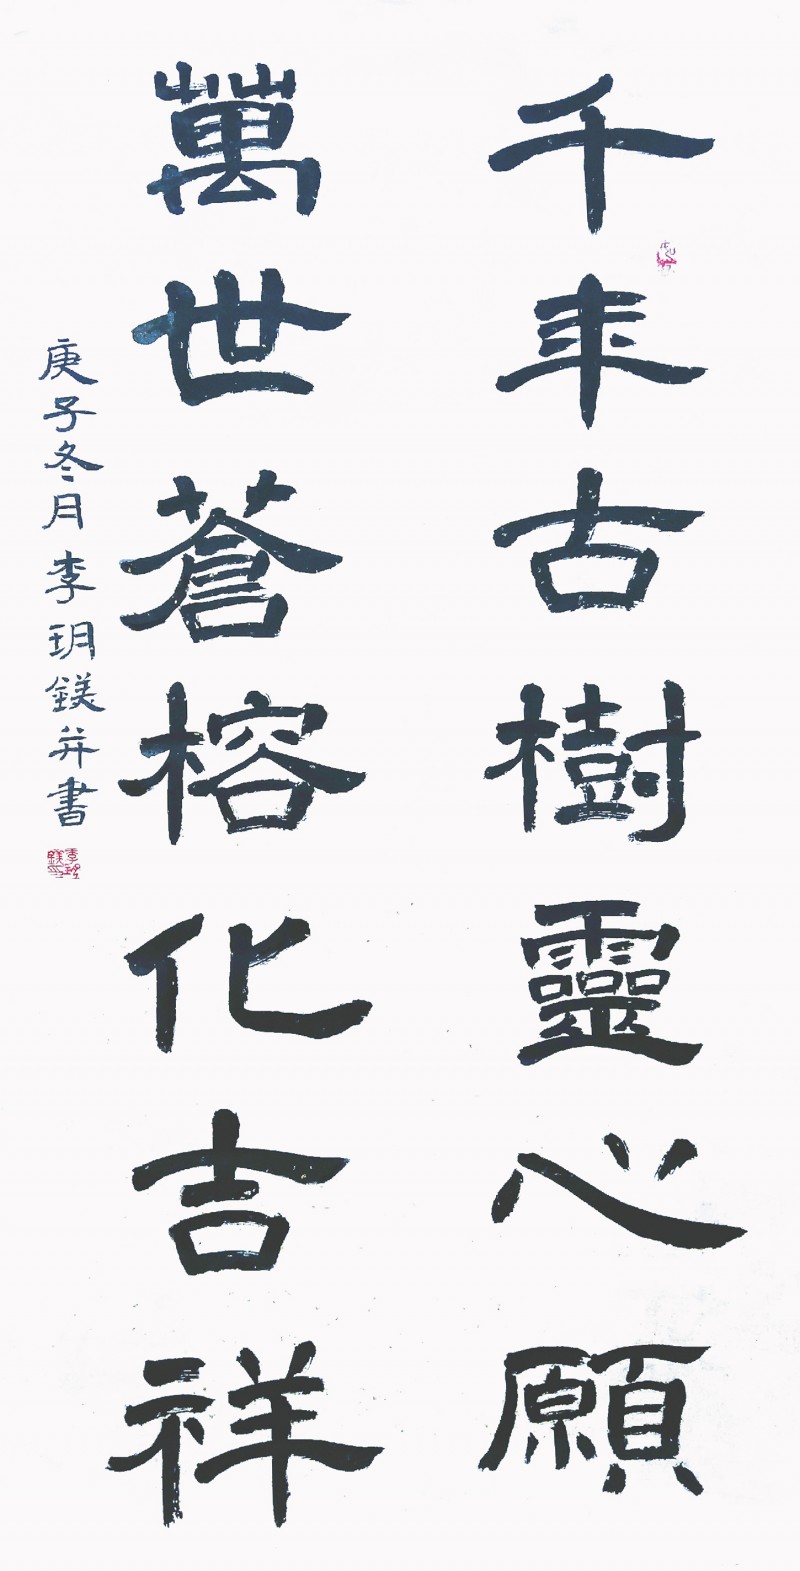 千年古樹靈心願
萬世蒼榕化吉祥
庚子冬月李玥鎂并書